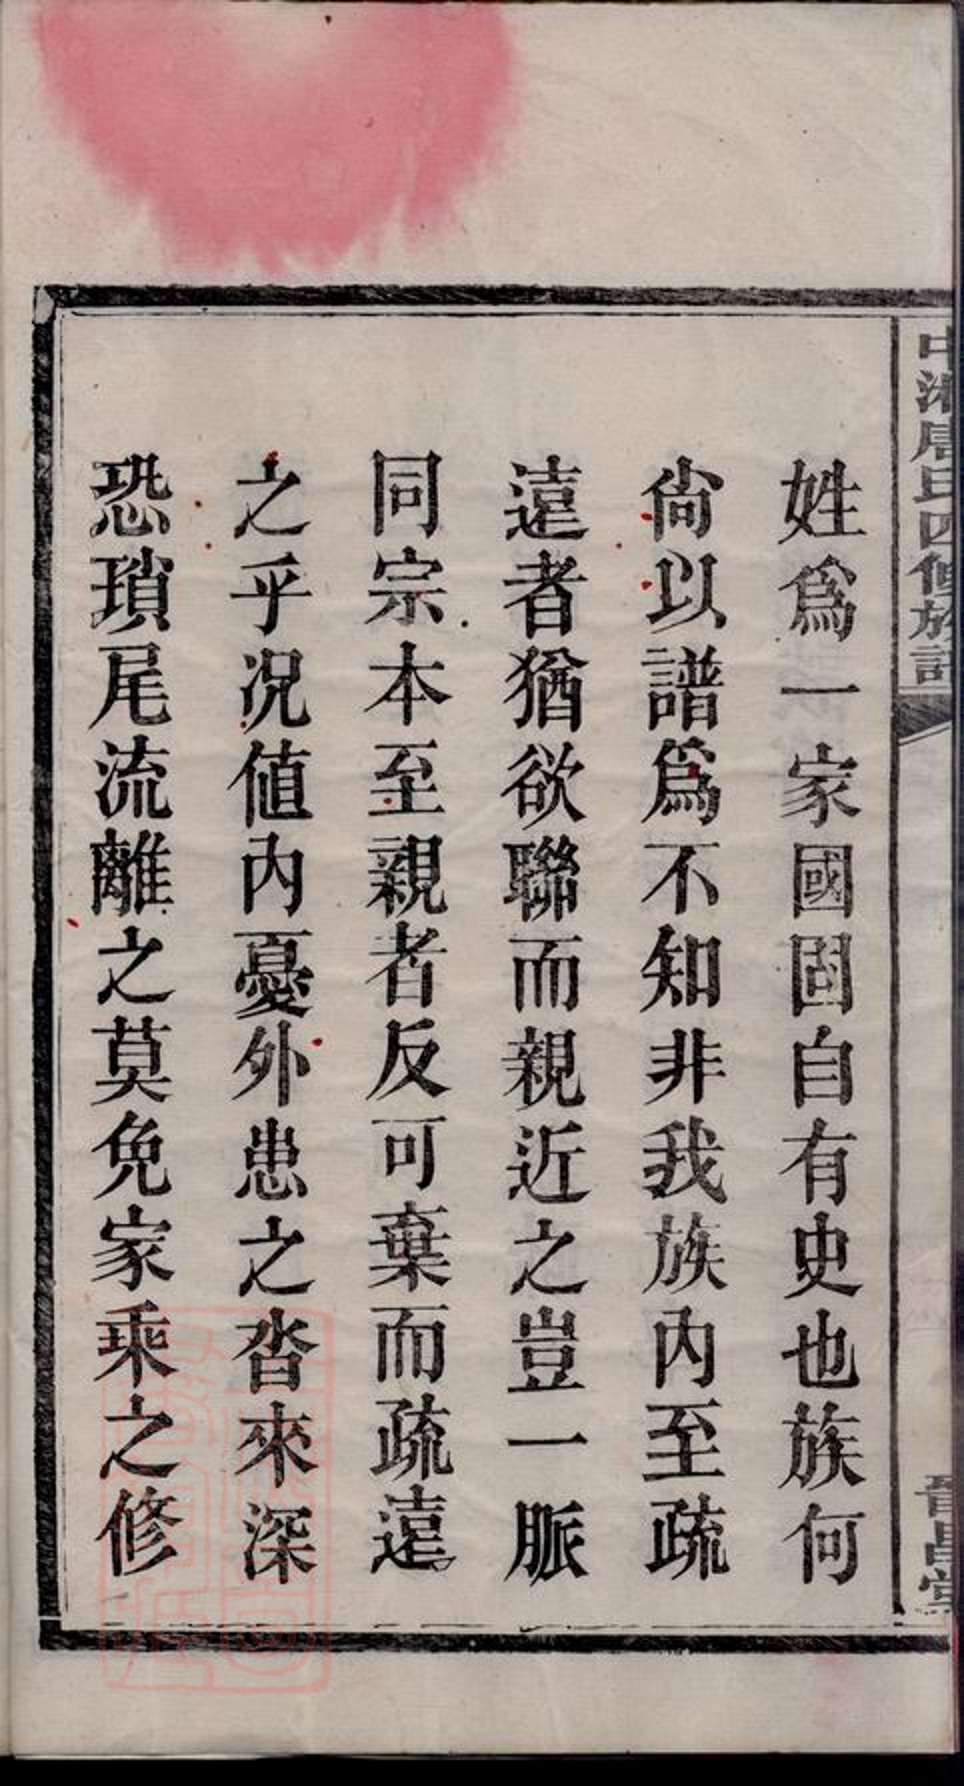 中湘唐氏四修族譜
晉昌堂
姓爲一家國固自有史也族何
尙以譜爲不知非我族內至疏
遠者猶欲聯而親近之豈一脈
同宗本至親者反可棄而疏遠
之乎况値內憂外患之沓來深
恐瑣尾流離之莫免家乘之修